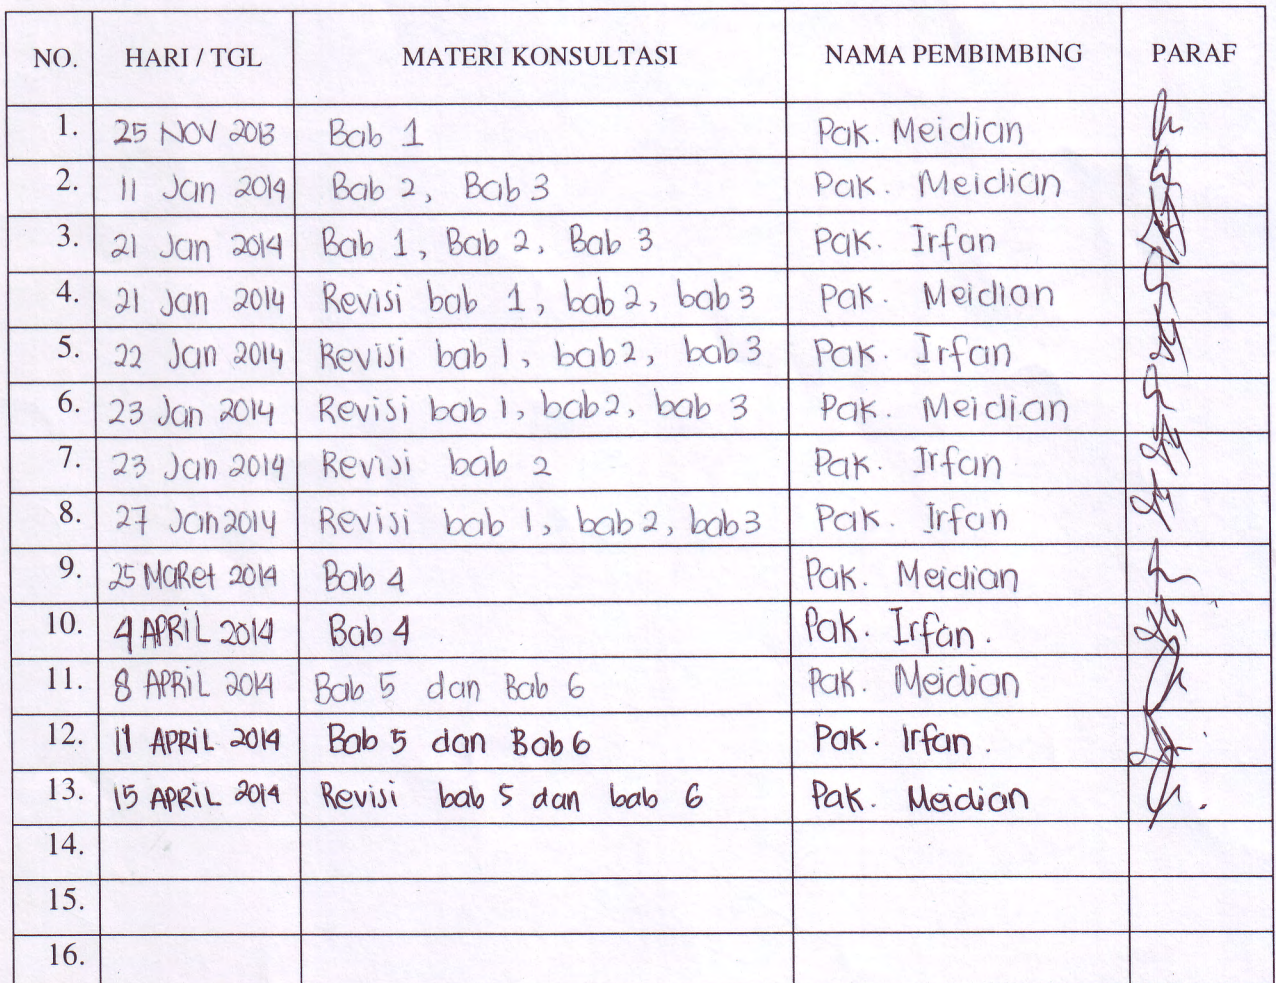 NO. HARI / TGL MATERI KONSULTASI NAMA PEMBIMBING PARAF
1. 25 NOV 2013 Bab 1 Pak. Meidian
2. 11 Jan 2014 Bab 2, Bab 3 Pak. Meidian
3. 21 Jan 2014 Bab 1, Bab 2, Bab 3 Pak. Irfan
4. 21 Jan 2014 Revisi bab 1, bab 2, bab 3 Pak. Meidian
5. 22 Jan 2014 Revisi bab 1, bab 2, bab 3 Pak. Irfan
6. 23 Jan 2014 Revisi bab 1, bab 2, bab 3 Pak. Meidian
7. 23 Jan 2014 Revisi bab 2 Pak. Irfan
8. 27 Jan 2014 Revisi bab 1, bab 2, bab 3 Pak. Irfan
9. 25 MaRet 2014 Bab 4 Pak. Meidian
10. 4 APRiL 2014 Bab 4 Pak. Irfan.
11. 8 APRiL 2014 Bab 5 dan Bab 6 Pak. Meidian
12. 11 APRiL 2014 Bab 5 dan Bab 6 Pak. Irfan.
13. 15 APRiL 2014 Revisi bab 5 dan bab 6 Pak. Meidian
14.
15.
16.